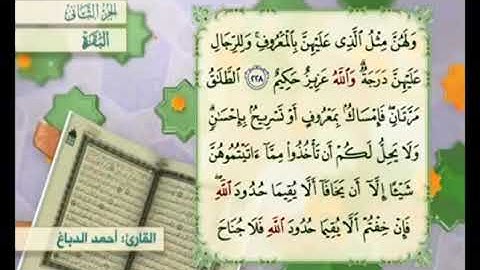 الجزء الثاني
البقرة
وَلَهُنَّ مِثْلُ ٱلَّذِى عَلَيْهِنَّ بِٱلْمَعْرُوفِ ۚ وَلِلرِّجَالِ
عَلَيْهِنَّ دَرَجَةٌ ۗ وَٱللَّهُ عَزِيزٌ حَكِيمٌ ٢٢٨ ٱلطَّلَٰقُ
مَرَّتَانِ ۖ فَإِمْسَاكٌۢ بِمَعْرُوفٍ أَوْ تَسْرِيحٌۢ بِإِحْسَٰنٍ ۗ
وَلَا يَحِلُّ لَكُمْ أَن تَأْخُذُوا۟ مِمَّآ ءَاتَيْتُمُوهُنَّ
شَيْـًٔا إِلَّآ أَن يَخَافَآ أَلَّا يُقِيمَا حُدُودَ ٱللَّهِ ۖ
فَإِنْ خِفْتُمْ أَلَّا يُقِيمَا حُدُودَ ٱللَّهِ فَلَا جُنَاحَ
القارئ: أحمد الدباغ